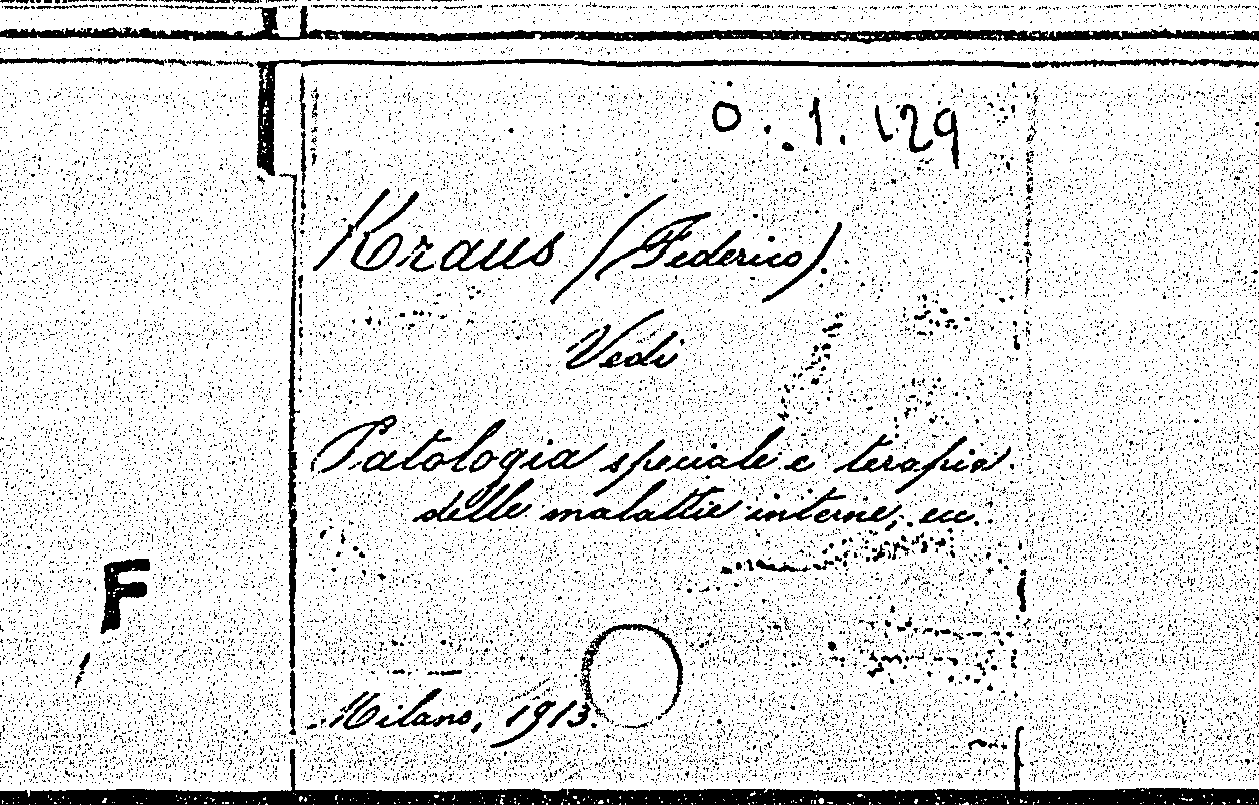 O. 1. 129
Kraus (Federico).
Vedi
Patologia speciale e terapia
delle malattie interne, ecc.
F
Milano, 1913.